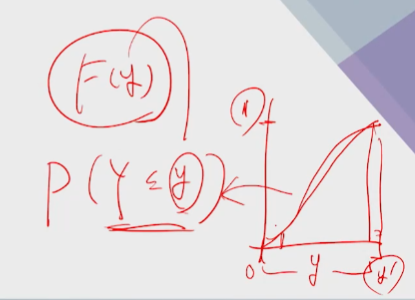 F(y)
P(Y ≤ y)
1
0 y y'